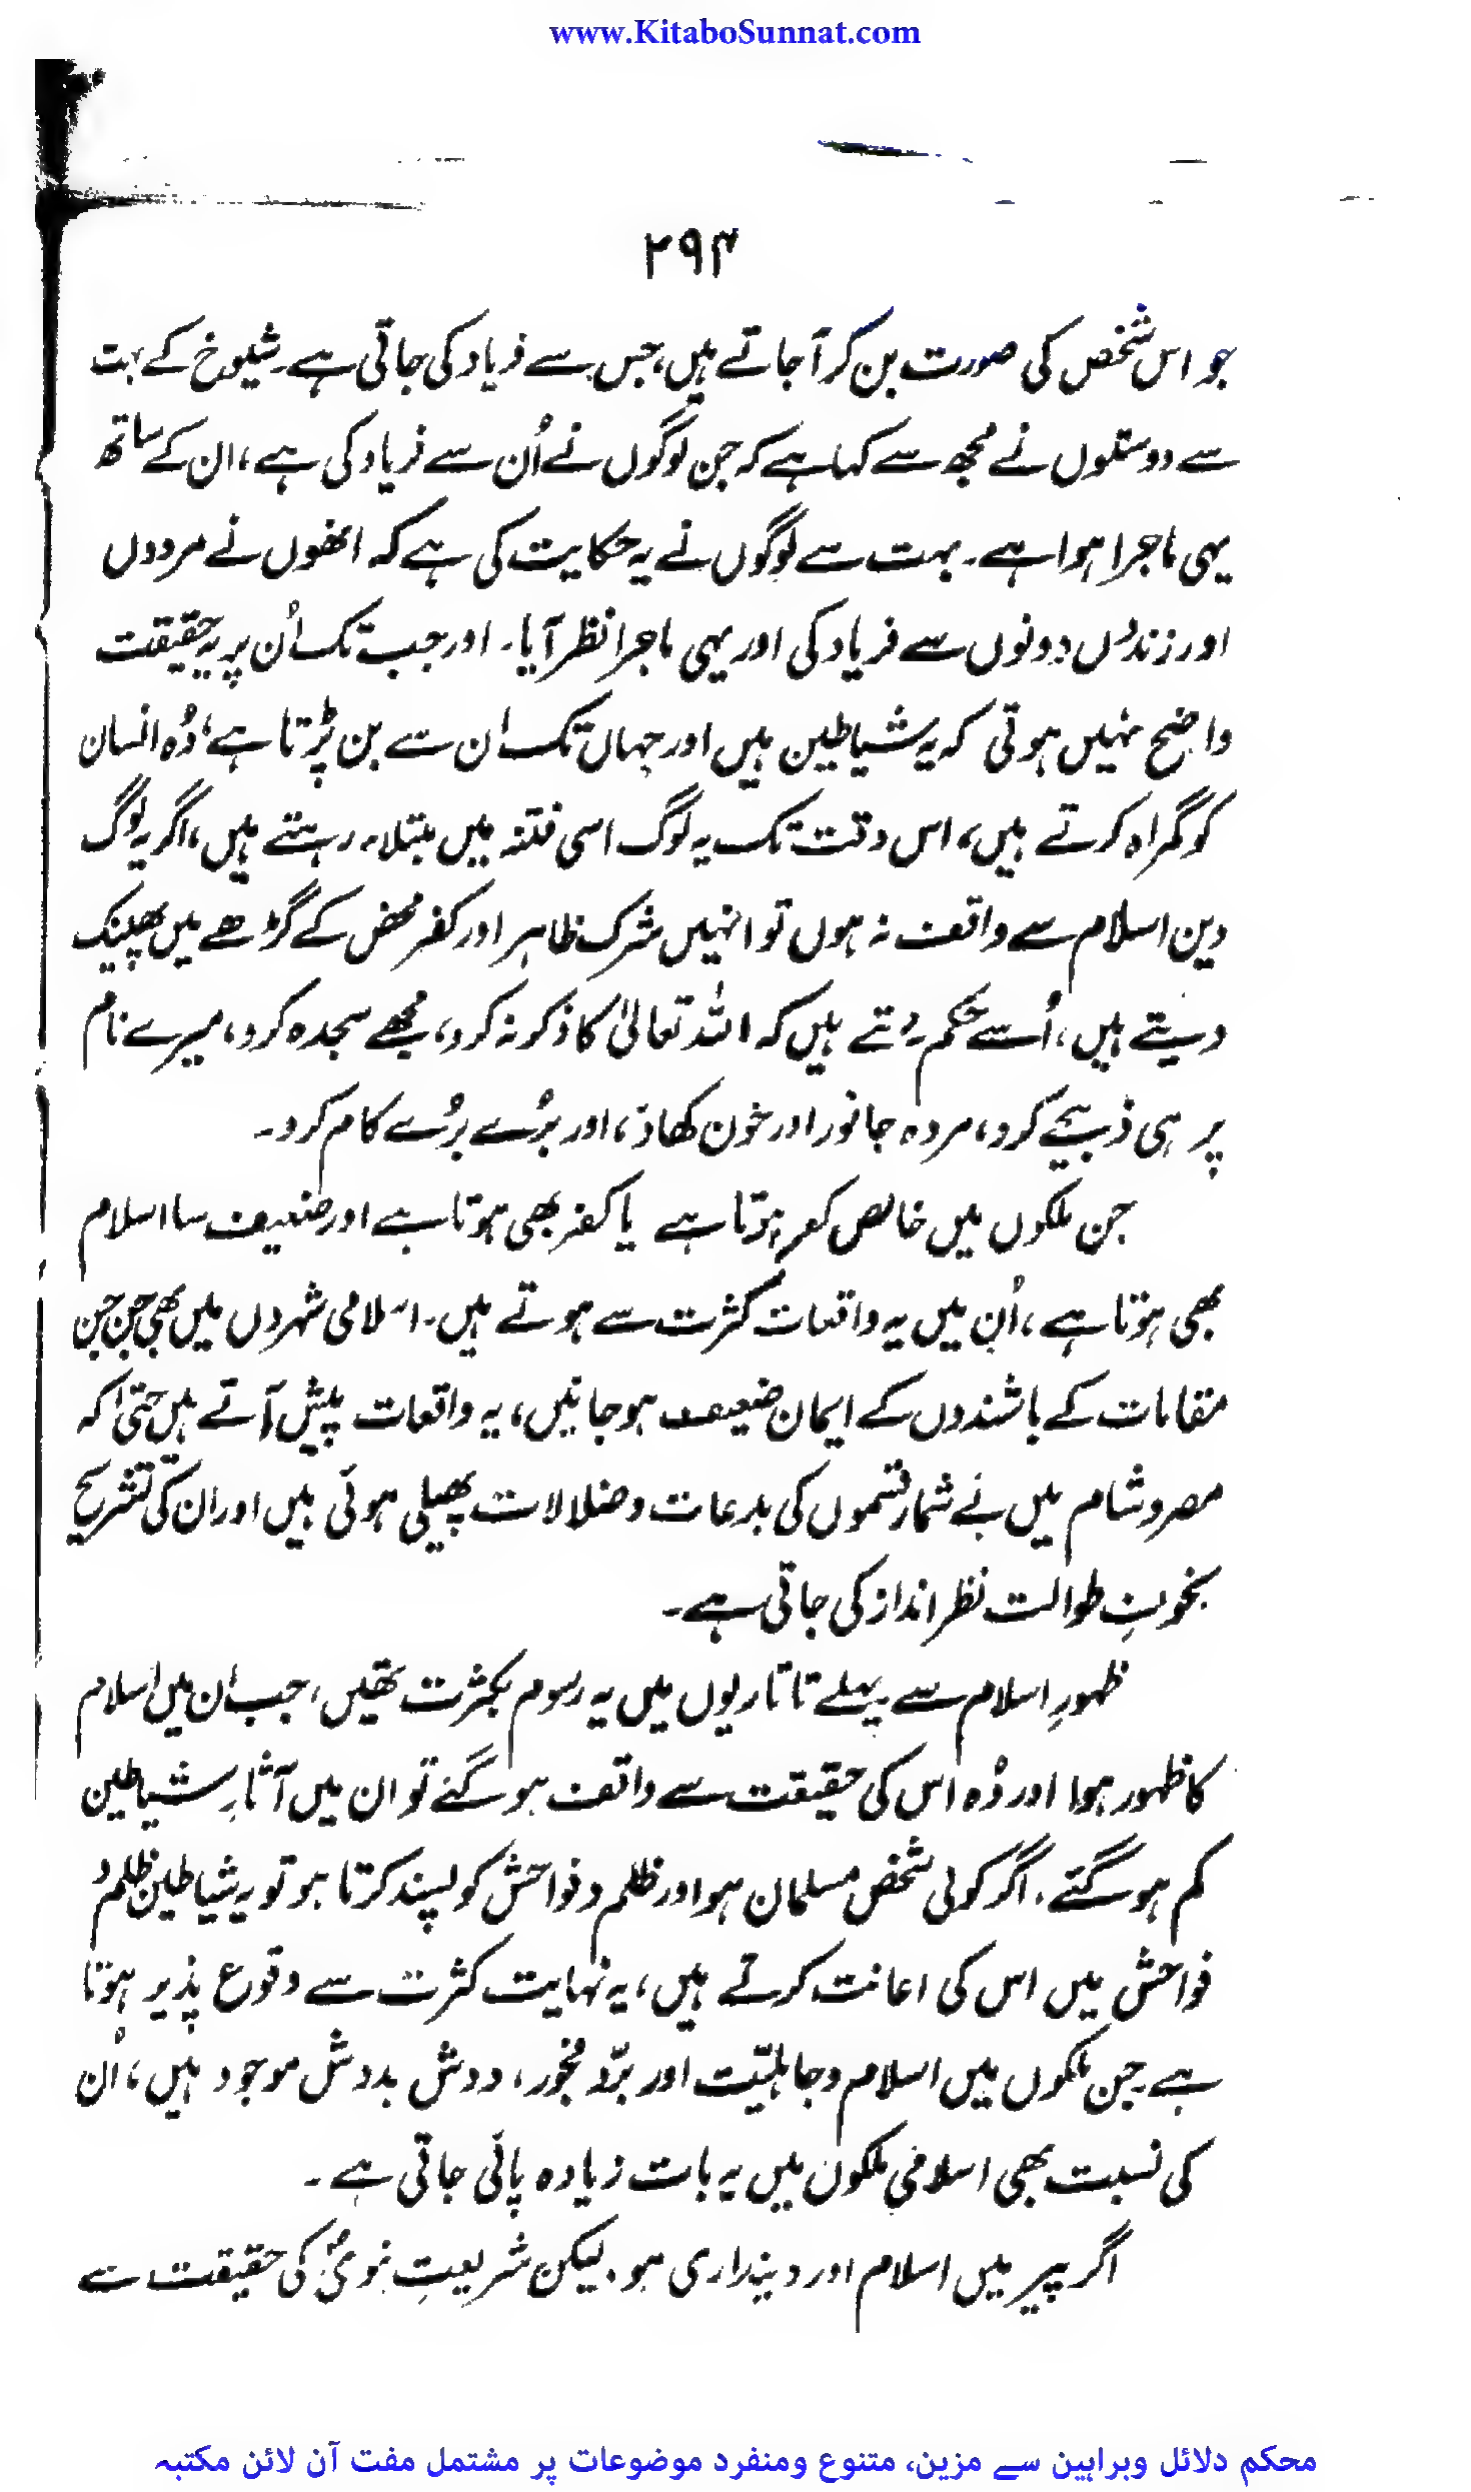 www.KitaboSunnat.com
۲۹۴
جو اس شخص کی صورت بن کر آجاتے ہیں، جس سے فریاد کی جاتی ہے۔ شیوخ کے بہت
سے دوستوں نے مجھ سے کہا ہے کہ جن لوگوں نے اُن سے فریاد کی ہے، ان کے ساتھ
یہی ماجرا ہوا ہے۔ بہت سے لوگوں نے یہ حکایت کی ہے کہ انھوں نے مردوں
اور زندوں دونوں سے فریاد کی اور یہی ماجرا نظر آیا۔ اور جب تک اُن پر یہ حقیقت
واضح نہیں ہوتی کہ یہ شیاطین ہیں اور جہاں تک ان سے بن پڑتا ہے، وُہ انسان
کو گمراہ کرتے ہیں، اس وقت تک یہ لوگ اسی فتنہ میں مبتلا رہتے ہیں، اگر یہ لوگ
دین اسلام سے واقف نہ ہوں تو انہیں شرک ظاہر اور کفر محض کے گڑھے میں پھینک
دیتے ہیں، اُسے حکم دیتے ہیں کہ اللہ تعالیٰ کا ذکر نہ کرو، مجھے سجدہ کرو، میرے نام
پر ہی ذبیحے کرو، مردہ جانور اور خون کھاؤ، اور بُرے بُرے کام کرو۔
جن ملکوں میں خالص کفر ہوتا ہے یا کفر بھی ہوتا ہے اور ضعیف سا اسلام
بھی ہوتا ہے، اُن میں یہ واقعات کثرت سے ہوتے ہیں۔ اسلامی شہروں میں بھی جن جن
مقامات کے باشندوں کے ایمان ضعیف ہوجائیں، یہ واقعات پیش آتے ہیں حتیٰ کہ
مصر و شام میں بے شمار قسموں کی بدعات و ضلالات پھیلی ہوئی ہیں اور ان کی تشریح
بخوفِ طوالت نظر انداز کی جاتی ہے۔
ظہورِ اسلام سے پہلے تاتاریوں میں یہ رسوم بکثرت تھیں، جب ان میں اسلام
کا ظہور ہوا اور وُہ اس کی حقیقت سے واقف ہو گئے تو ان میں آثارِ شیاطین
کم ہو گئے۔ اگر کوئی شخص مسلمان ہو اور ظلم و فواحش کو پسند کرتا ہو تو یہ شیاطین ظلم و
فواحش میں اس کی اعانت کرتے ہیں، یہ نہایت کثرت سے وقوع پذیر ہوتا
ہے۔ جن ملکوں میں اسلام و جاہلیّت اور برّ و فجور، دوش بدوش موجود ہیں، اُن
کی نسبت بھی اسلامی ملکوں میں یہ بات زیادہ پائی جاتی ہے۔
اگر پیر میں اسلام اور دینداری ہو۔ لیکن شریعتِ نبویؐ کی حقیقت سے
محکم دلائل وبراہین سے مزین، متنوع ومنفرد موضوعات پر مشتمل مفت آن لائن مکتبہ